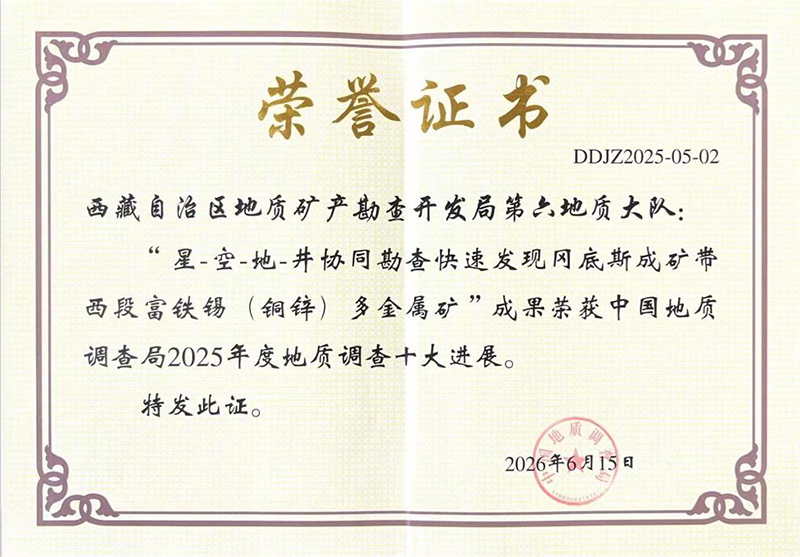 荣誉证书
DDJZ2025-05-02
西藏自治区地质矿产勘查开发局第六地质大队：
“星-空-地-井协同勘查快速发现冈底斯成矿带
西段富铁锡（铜锌）多金属矿”成果荣获中国地质
调查局2025年度地质调查十大进展。
特发此证。
中国地质调查局
2026年6月15日